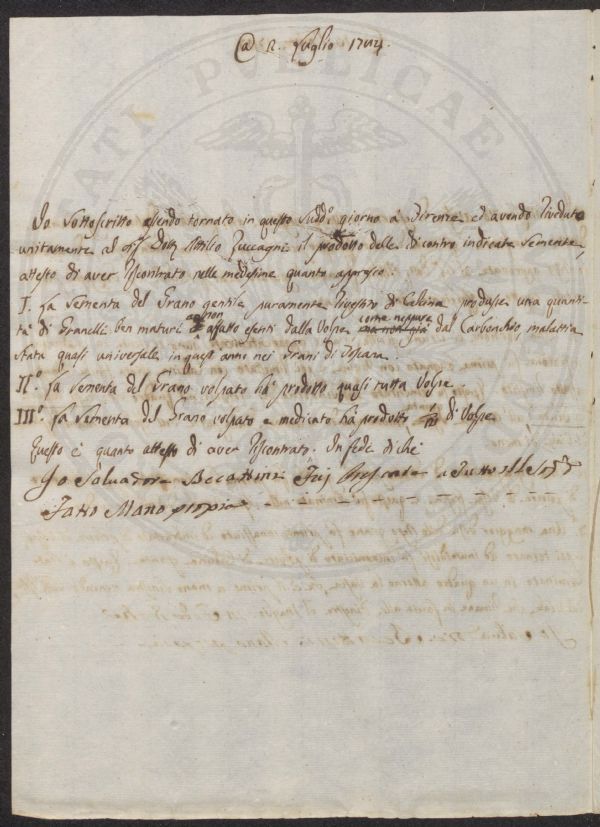 @ 2. Luglio 17
Io Sottoscritto essendo tornato in questo Sudd.º giorno a Firenze ed avendo Riveduto
unitamente al Dott. Attilio Zuccagni il prodotto delle di contro indicate Semente,
attesto di aver Riscontrato nelle medesime quanto appresso:
I. La Sementa del Grano gentile puramente di Calcina produsse una quanti-
tà di Granelli ben maturi non affatto esenti dalla Volpe come neppure dal Carbonchio, malattia
stata quasi universale in quest'anno nei Grani di Toscana.
II.º La Sementa del Grano volpato ha prodotto quasi tutta Volpe.
III.º La Sementa del Grano volpato e medicato ha prodotto di Volpe
Questo è quanto attesto di aver Riscontrato. In fede di che
Io Salvadore Becattini Fui Presente a Tutto il
Fatto Mano propria
PUBLICAE